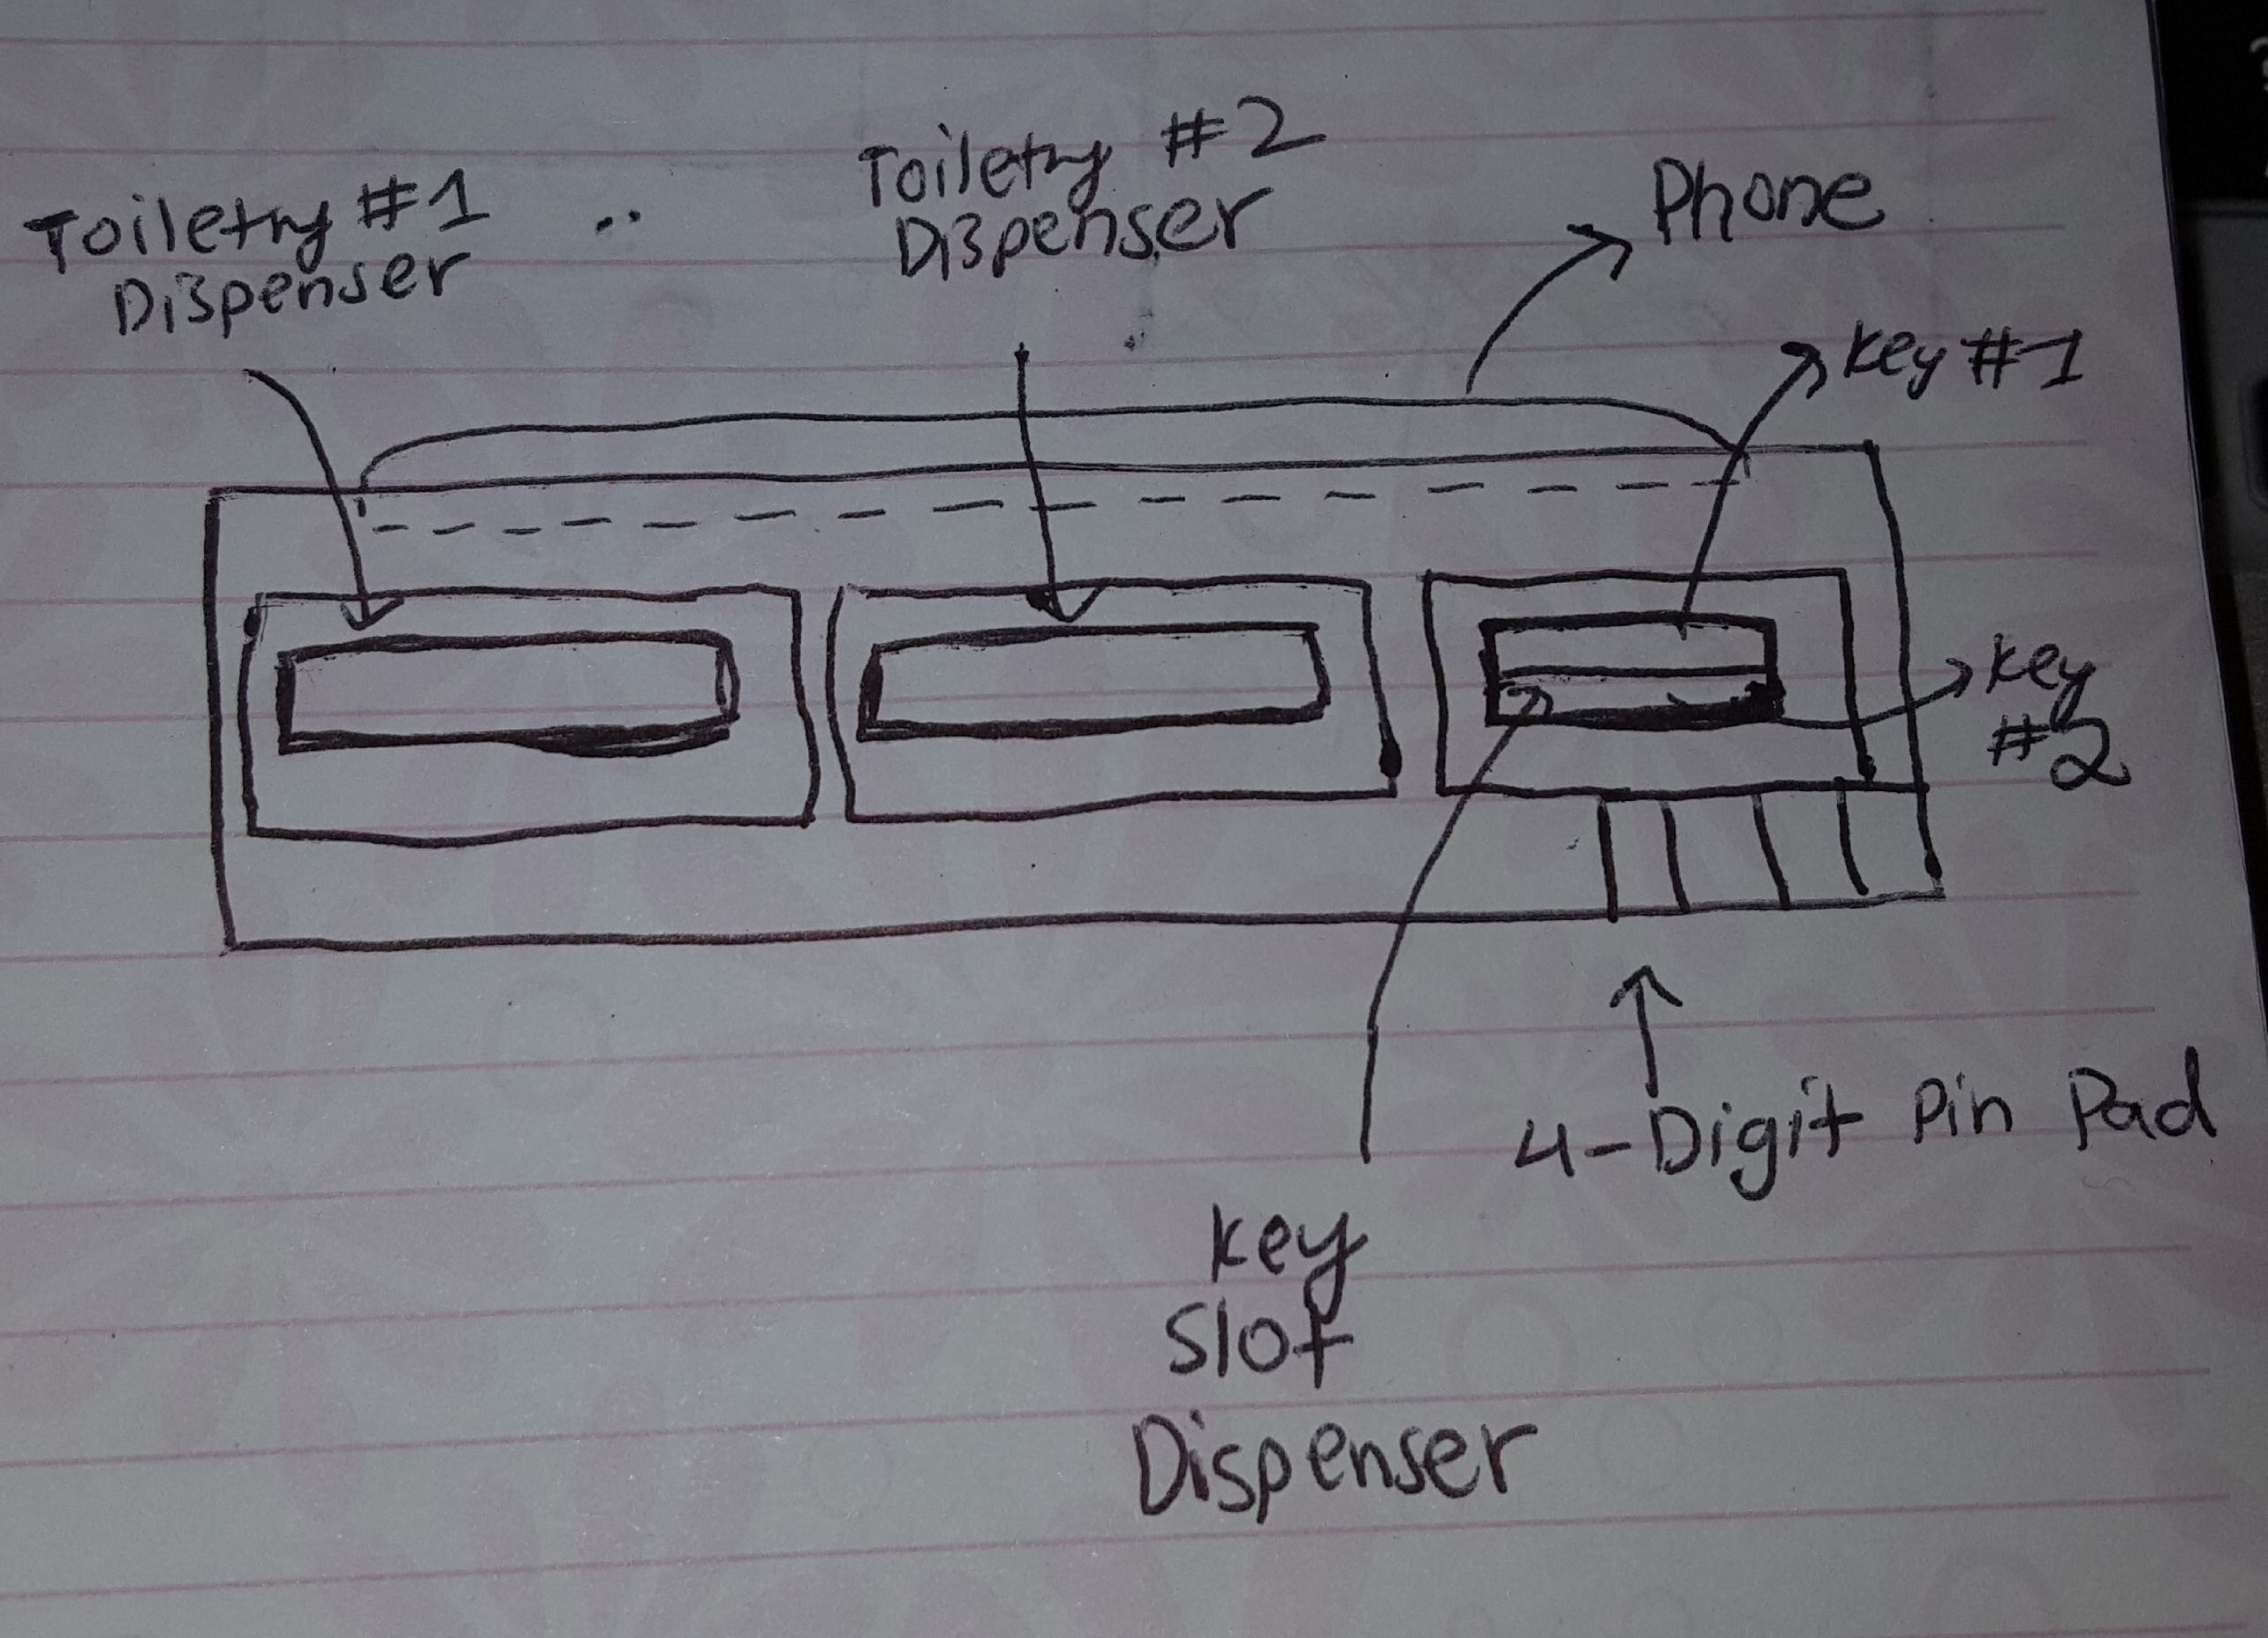 Toiletry #1
Dispenser
Toiletry #2
Dispenser
Phone
key #1
key
#2
4-Digit Pin Pad
key
Slot
Dispenser